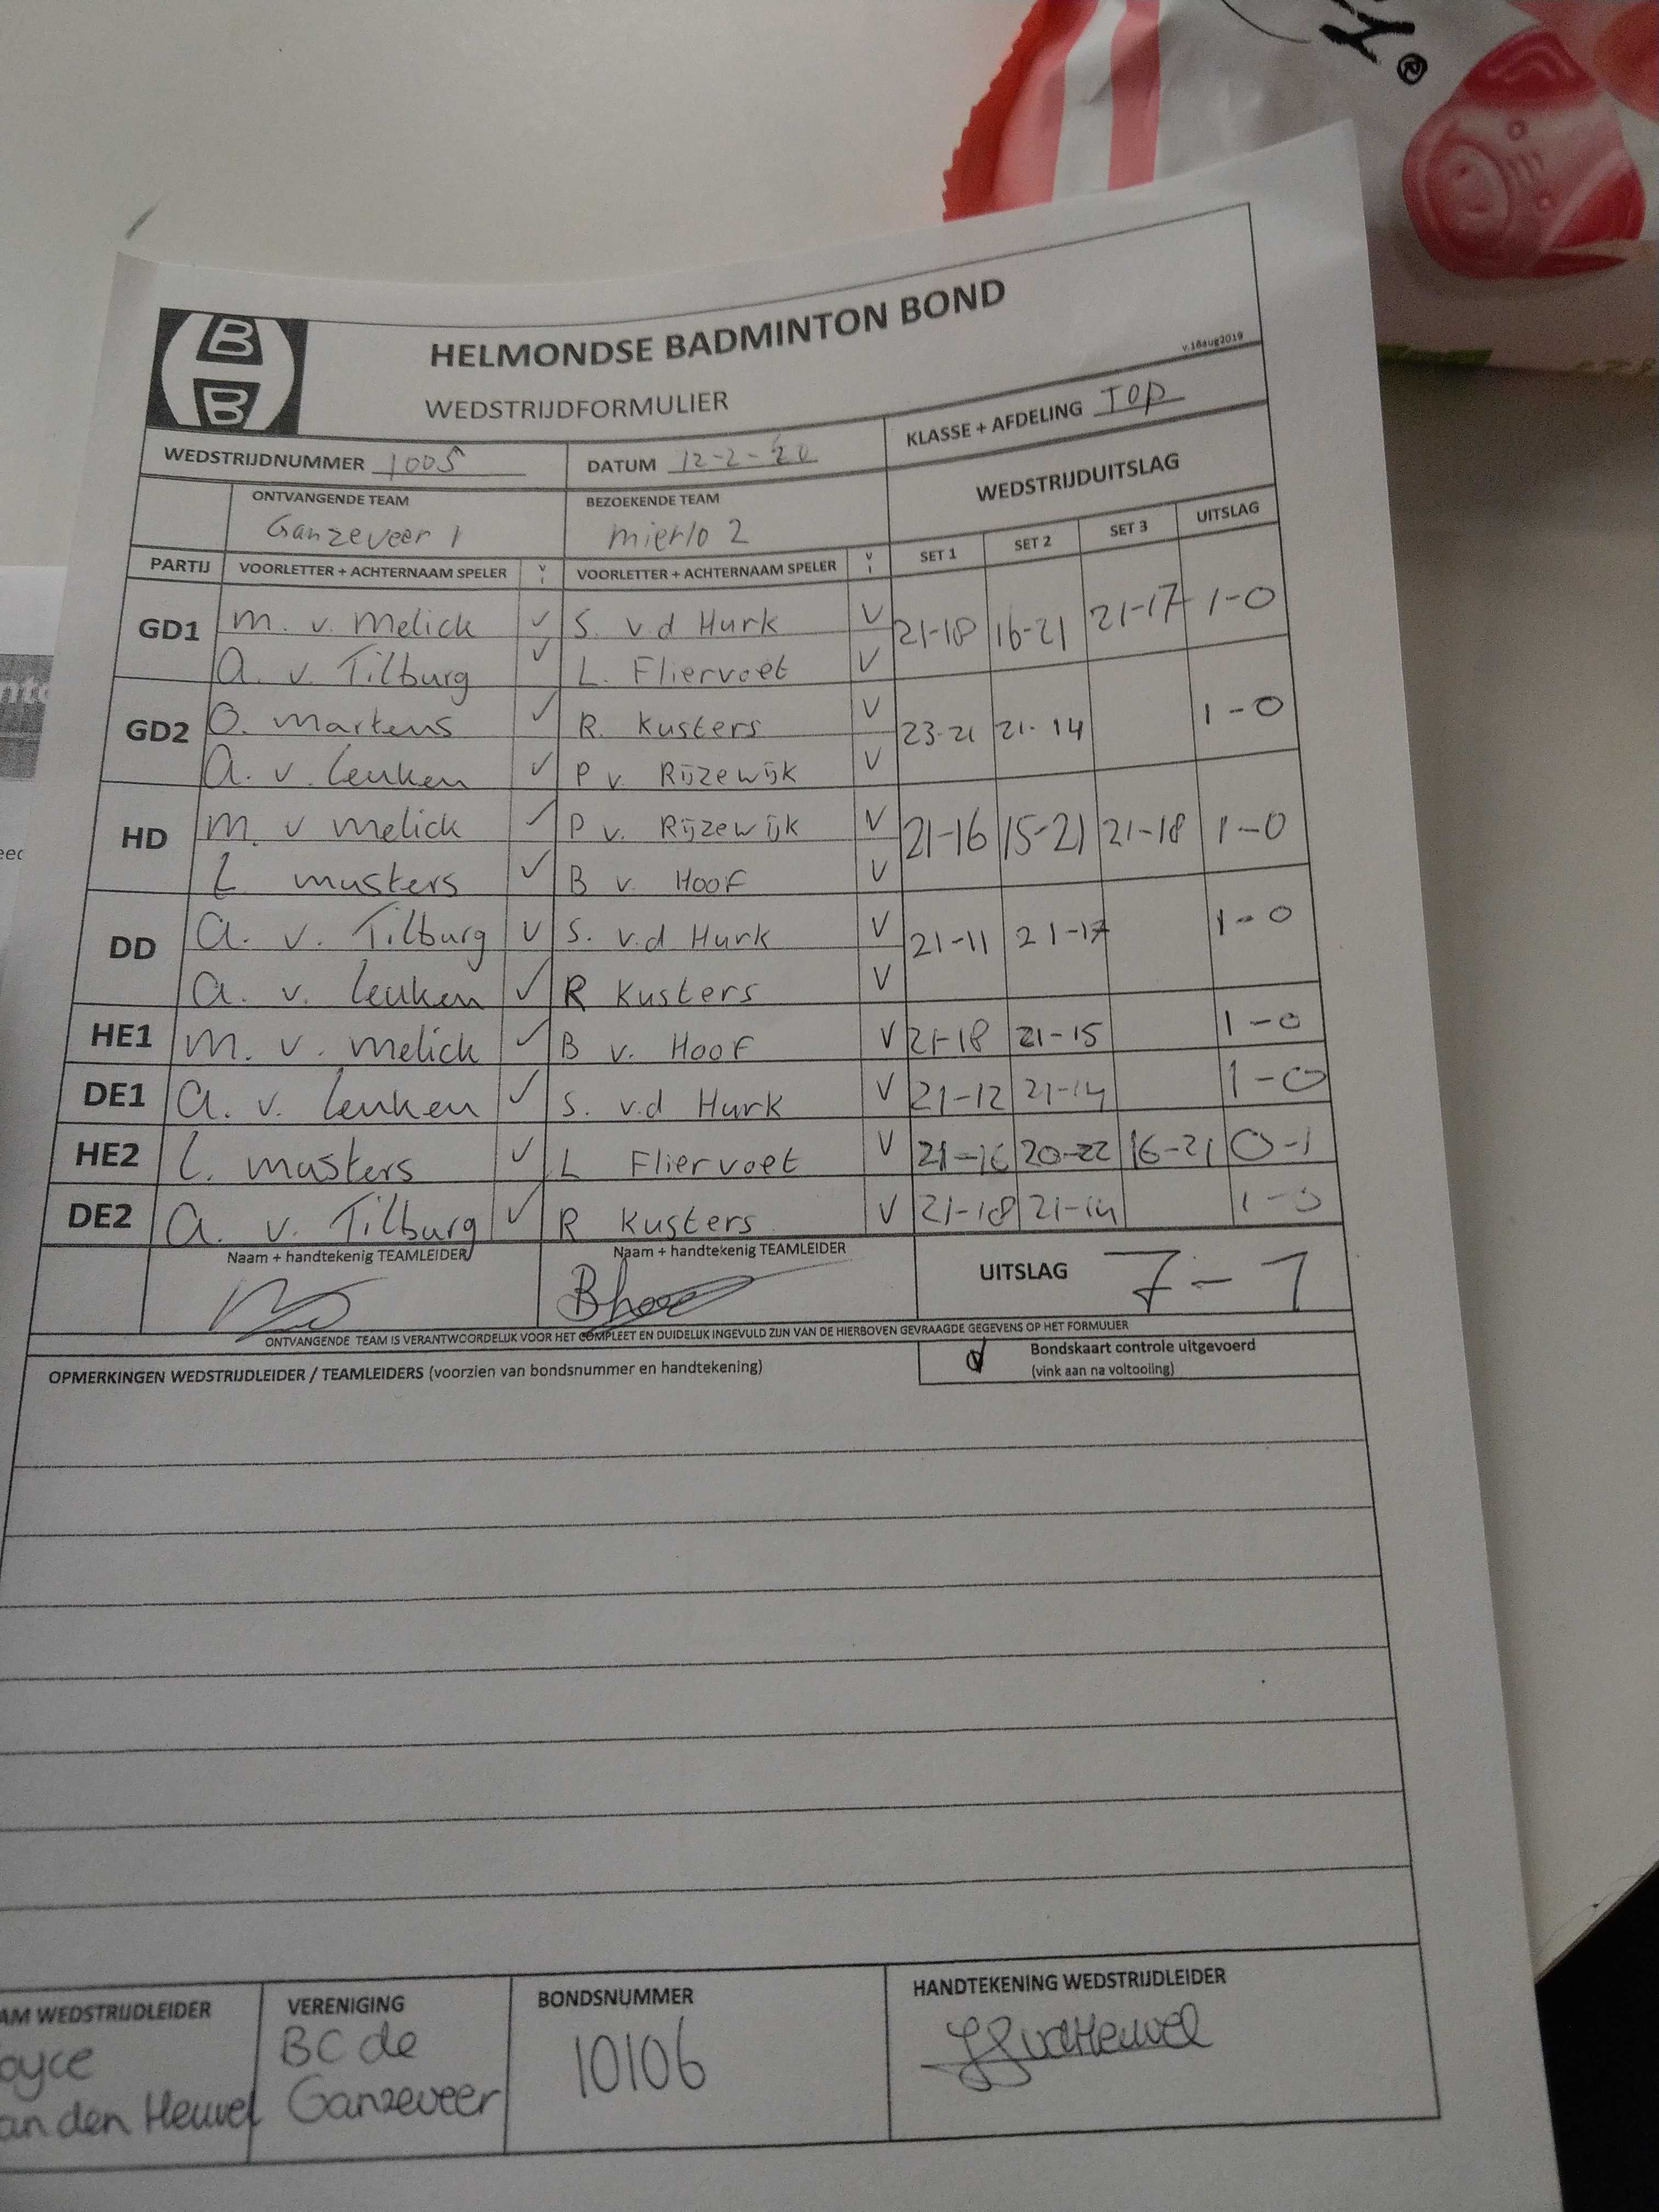 ®
B
B
HELMONDSE BADMINTON BOND
v.16aug2019
WEDSTRIJDFORMULIER
KLASSE + AFDELING TOP
WEDSTRIJDNUMMER 1005 DATUM 12-2-20
WEDSTRIJDUITSLAG
ONTVANGENDE TEAM BEZOEKENDE TEAM
Ganzeveer 1 mierlo 2
SET 1 SET 2 SET 3 UITSLAG
PARTIJ VOORLETTER + ACHTERNAAM SPELER V I VOORLETTER + ACHTERNAAM SPELER V I
GD1 m. v. melick ✓ S. v.d Hurk V 21-18 16-21 21-17 1-0
a. v. Tilburg ✓ L. Fliervoet V
GD2 O. martens ✓ R. Kusters V 23-21 21-14 1-0
a. v. leuken ✓ P v. Rijzewijk V
HD m. v melick ✓ P v. Rijzewijk V 21-16 15-21 21-18 1-0
L musters ✓ B v. Hoof V
DD a. v. Tilburg V S. v.d Hurk V 21-11 21-17 1-0
a. v. leuken ✓ R Kusters V
HE1 m. v. melick ✓ B v. Hoof V 21-18 21-15 1-0
DE1 a. v. leuken ✓ S. v.d Hurk V 21-12 21-14 1-0
HE2 l. musters ✓ L Fliervoet V 21-16 20-22 16-21 0-1
DE2 a. v. Tilburg ✓ R Kusters V 21-18 21-14 1-0
Naam + handtekenig TEAMLEIDER Naam + handtekenig TEAMLEIDER
UITSLAG 7-1
ONTVANGENDE TEAM IS VERANTWOORDELIJK VOOR HET COMPLEET EN DUIDELIJK INGEVULD ZIJN VAN DE HIERBOVEN GEVRAAGDE GEGEVENS OP HET FORMULIER
Bondskaart controle uitgevoerd
(vink aan na voltooling)
OPMERKINGEN WEDSTRIJDLEIDER / TEAMLEIDERS (voorzien van bondsnummer en handtekening)
AM WEDSTRIJDLEIDER VERENIGING BONDSNUMMER HANDTEKENING WEDSTRIJDLEIDER
oyce BC de 10106
an den Heuvel Ganzeveer